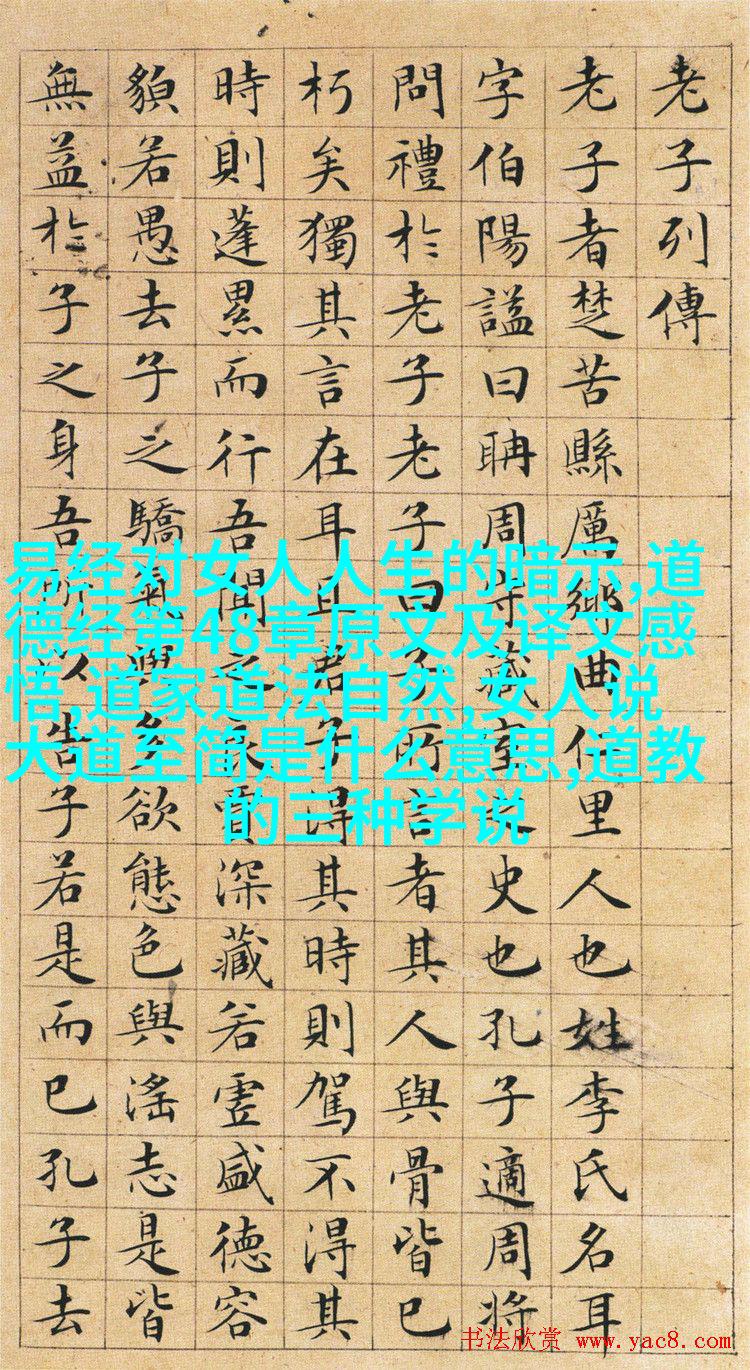 老子列傳
老子者楚苦縣厲鄉曲仁里人也姓李氏名耳
字伯陽謚曰聃周守藏室之史也孔子適周將
問禮於老子老子曰子所言者其人與骨皆已
朽矣獨其言在耳且君子得其時則駕不得其
時則蓬累而行吾聞之良賈深藏若虛盛德容
貌若愚去子之驕氣與多欲態色與淫志是皆
無益於子之身吾所以告子若是而已孔子去
易经对女人人生的暗示,道
德经第48章原文及译文感
悟,道家道法自然,女人说
大道至简是什么意思,道教
的三种学说
书法欣赏 www.yac8.com